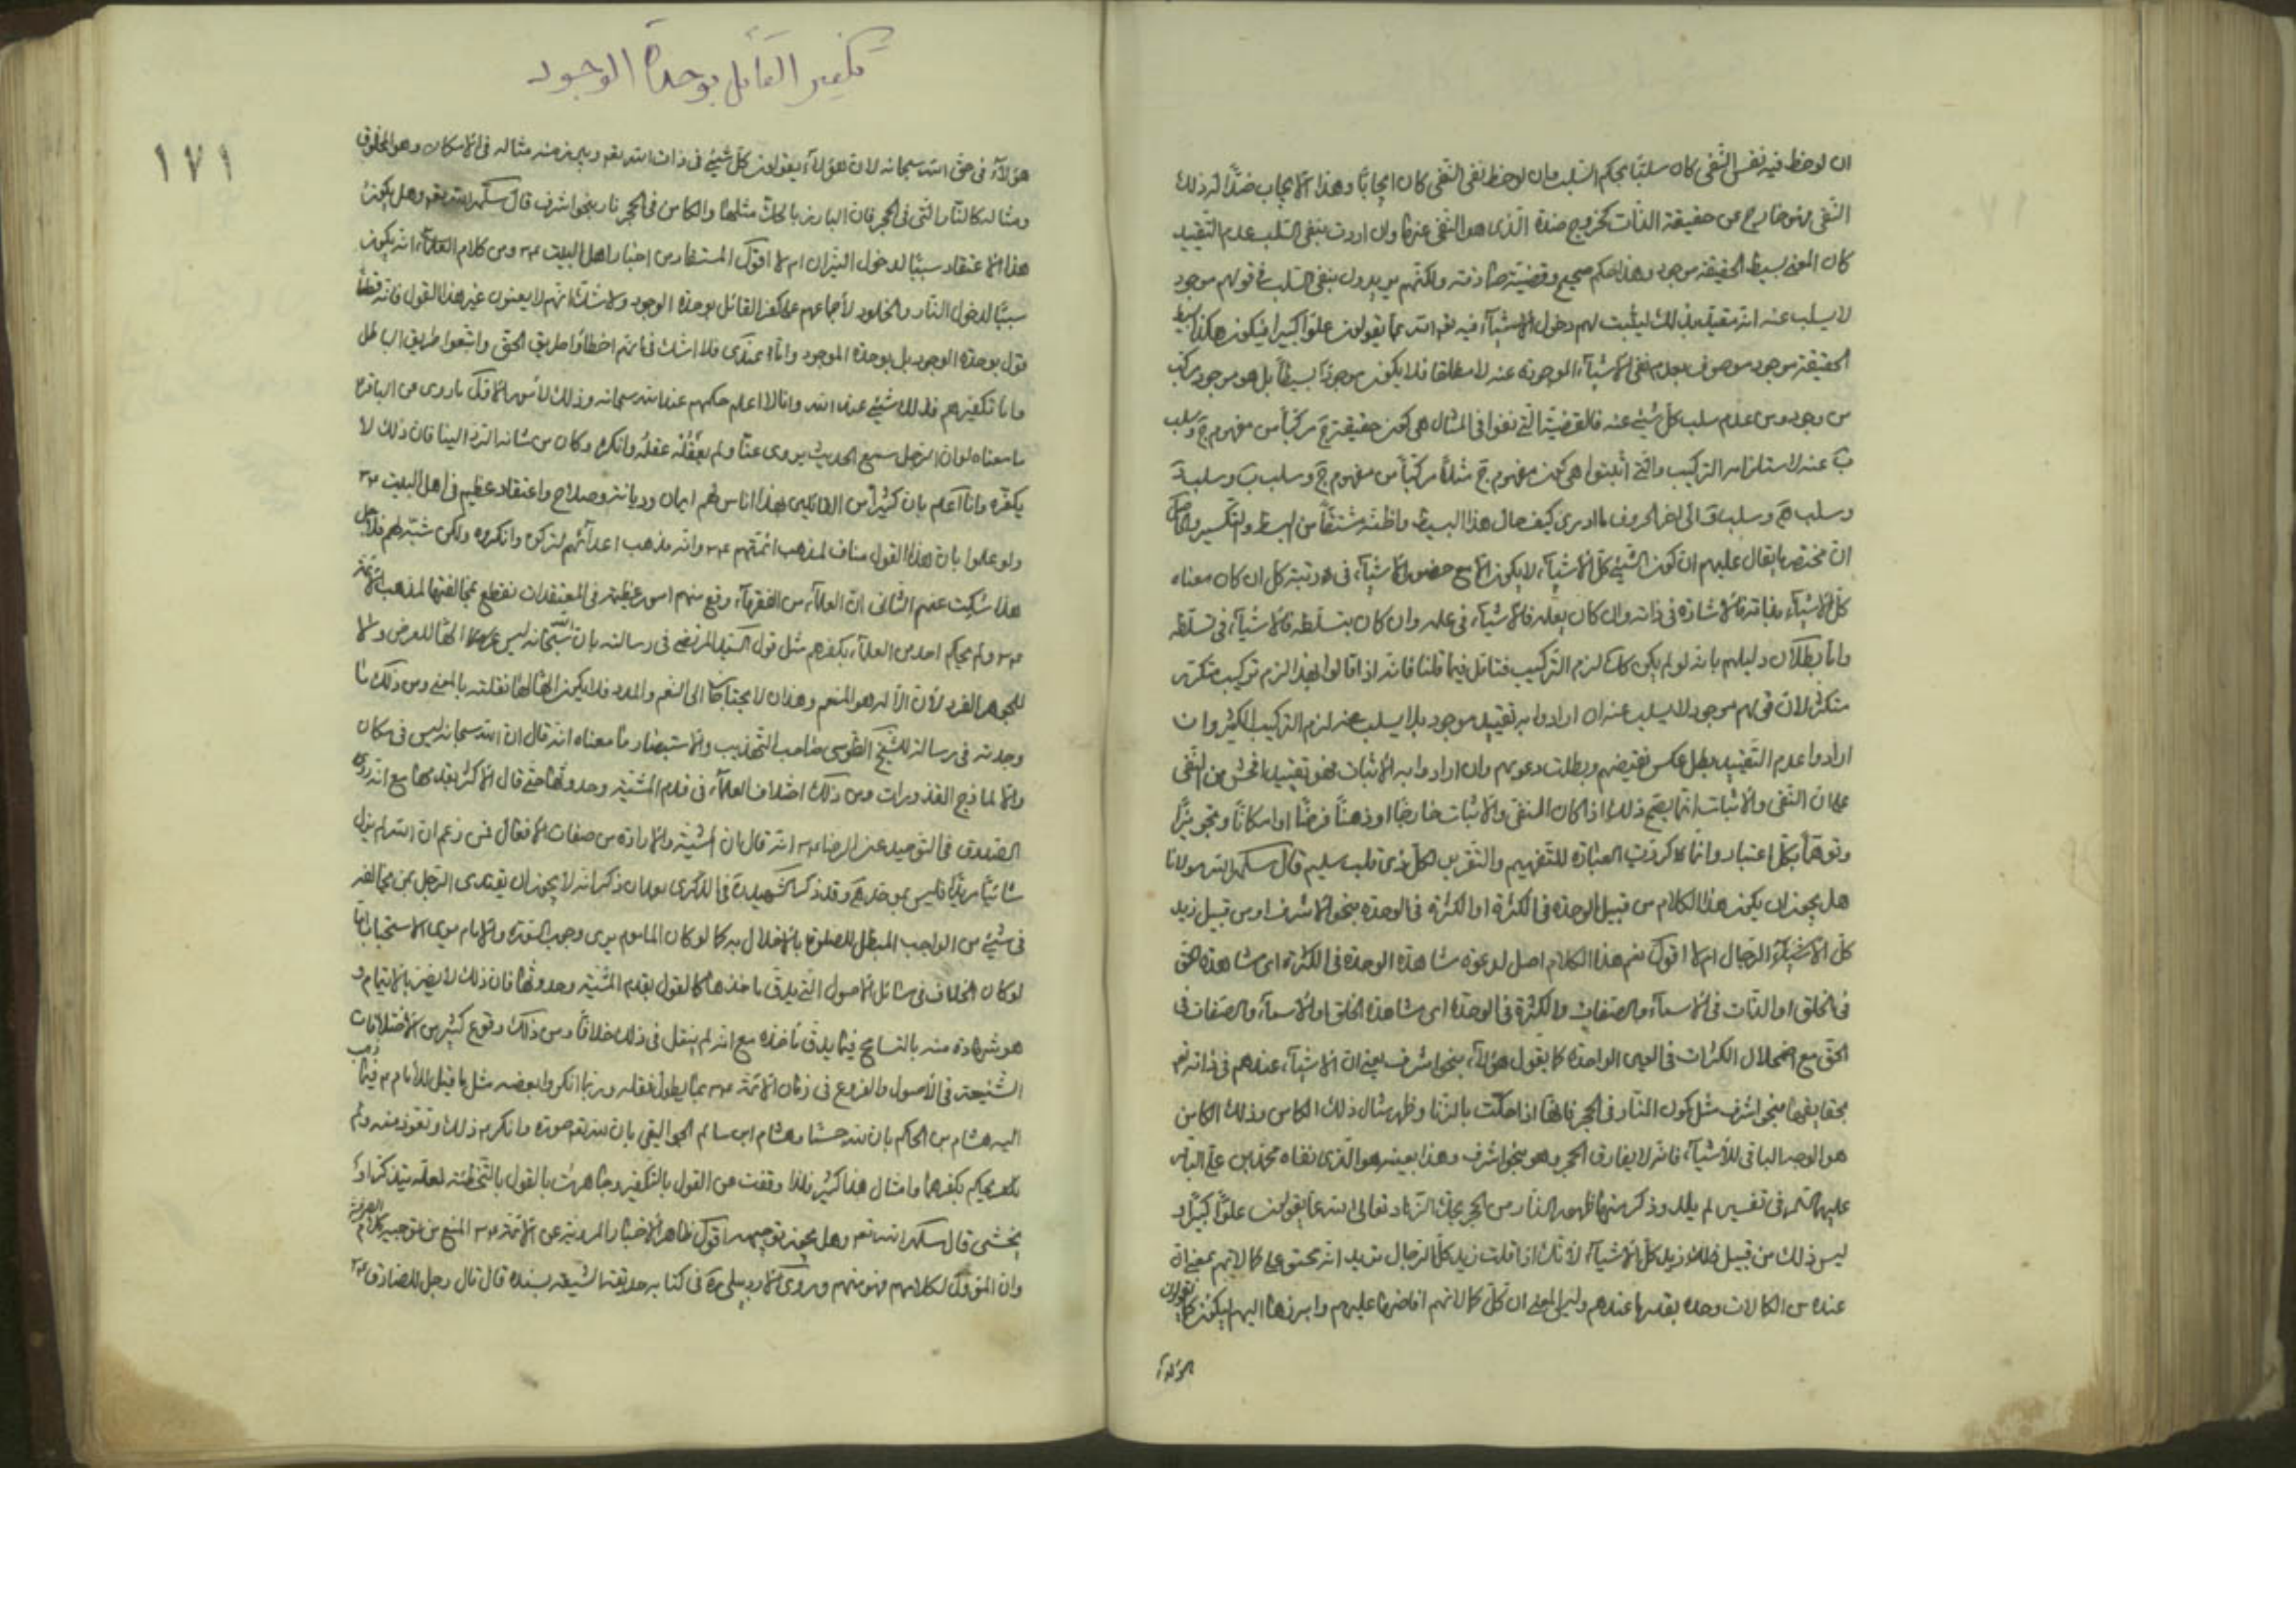 ان لوحظ فيه نفس النفى كان سلبًا بحكم السلب وان لوحظ نفى النفى كان ايجابًا وهذا الايجاب ضدًّا لذلك
النفى فهو خارج عن حقيقة الذات كخروج ضده الّذى هو النفى عنها وان اردت بنفى السلب عدم التقييد
كان المعنى بسيط الحقيقة موجود وهذا حكم صحيح وقضيّة صادقة ولكنهم يريدون بنفى السلب فى قولهم موجود
لا يسلب عنه انه مقيد بذلك ليثبت لهم دخول الاشيآء فيه تعالى الله عما يقولون علوّا كبيرا فيكون هكذا بسيط
الحقيقة موجود موصوف بعدم نفى الاشيآء الموجودة عنه لا مطلقا فلا يكون موجودًا بسيطًا بل هو موجود مركب
من وجود ومن عدم سلب كل شيئ عنه فالقضيّة الّتى نفوا فى المثال هى كون حقيقة ج مركّبًا من مفهوم ج وسلب
ب عنه لاستلزامه التركيب والّتى اثبتوا هى كون مفهوم ج مثلًا مركبًا من مفهوم ج وسلب ب وسلب ة
وسلب ة وسلب ف الى اخر الحروف ما ادرى كيف حال هذا البسيط واظنّه مشتقًّا من البسط والتكسير والحاصل
ان مختصر ما يقال عليهم ان كون الشيئ كل الاشيآء لا يكون الا مع حضور الاشيآء فى رتبة كل ان كان معناه
كل الاشيآء بذاته فالاشارة فى ذاته وان كان بعلمه فالاشيآء فى علمه وان كان بتسلّطه فالاشيآء فى تسلّطه
وامّا بطلان دليلهم بانه لو لم يكن كذلك لزم التّركيب فتامّل فيما قلنا فانه اذا قالوا بهذا لزم تركيب متكرّر
متكثّر لان قولهم موجود لا يسلب عنه ان ارادوا به تقييد موجود بلا يسلب عنه لزم التركيب الكثير وان
ارادوا عدم التّقييد بطل عكس نقيضهم وبطلت دعويهم وان ارادوا به الاثبات فهو تقييد افحش من النفى
على ان النفى والاثبات انّما يصح ذلك اذا كان المنفى والاثبات خارجًا او ذهنًا فرضًا او امكانًا وتجويزًا
وتوهّمًا بكل اعتبار وانما كررت العبارة للتفهيم والتقريب لكل ذى قلب سليم قال سلمه الله مولانا
هل يجوز ان يكون هذا الكلام من قبيل الوحدة فى الكثرة او الكثرة فى الوحدة بنحو الاشرف او من قبيل زيد
كل الاشيآء الرجال ام لا اقول نعم هذا الكلام اصل لدعوة مشاهدة الوحدة فى الكثرة اى مشاهدة الحق
فى الخلق او الذات فى الاسمآء والصفات والكثرة فى الوحدة اى مشاهدة الخلق او الاسمآء والصفات فى
الحقّ مع اضمحلال الكثرات فى العين الواحدة كما يقول هؤلآء بنحو اشرف يعنى ان الاشيآء عندهم فى ذاته تعالى
بحقايقها بنحو اشرف مثل كون النار فى الحجر فانها اذا حكّت بالزّناد ظهر مثال ذلك الكامن وذلك الكامن
هو الوجه الباقى للاشيآء فانه لا يفارق الحجر وهو بنحو اشرف وهذا بعينه هو الّذى نفاه محمد بن على الباقر
عليهما السلام فى تفسير لم يلد وذكر منها ظهور النار من الحجر بحكّ الزناد تعالى الله عما يقولون علوًّا كبيرًا و
ليس ذلك من قبيل ذلك زيد كل الاشيآء لانك اذا قلت زيد كل الرجال تريد انه محتو على كمالاتهم بمعنى ان
عنده من الكمالات وحده بقدر ما عندهم وليس المعنى ان كل كمالاتهم افاضها عليهم وابرزها اليهم ليكون كما يقولون
هؤلآء
١٧١
تكفير القائل بوحدة الوجود
هؤلآء فى حق الله سبحانه لان هؤلآء يقولون كل شيئ فى ذات الله تعالى ويبرز منه مثاله فى الامكان وهو المخلوق
ومثاله كالنار الّتى فى الحجر فان البارز بالحكّ مثلها والكامن فى الحجر نار بنحو اشرف قال سلمه الله تعالى وهل يكون
هذا الاعتقاد سببًا لدخول النيران ام لا اقول المستفاد من اخبار اهل البيت ع ومن كلام العلمآء انه يكون
سببًا لدخول النار والخلود لاجماعهم على كفر القائل بوحدة الوجود ولا شك انهم لا يعنون غير هذا القول فانه قطعًا
قول بوحدة الوجود بل بوحدة الموجود وامّا عندى فلا اشك فى انهم اخطأوا طريق الحق واتّبعوا طريق الباطل
وامّا تكفيرهم فذلك شيئ عند الله وانا لا اعلم حكمهم عند الله سبحانه وذلك لامور الاول ما روى عن الباقر ع
ما معناه لو ان الرجل سمع الحديث يروى عنّا ولم يعقله عقله وانكره وكان من شانه الردّ الينا فان ذلك لا
يكفّره وانا اعلم بان كثيرًا من القائلين بهذا اناس لهم ايمان وديانة وصلاح واعتقاد عظيم فى اهل البيت ع
ولو علموا بان هذا القول مناف لمذهب ائمّتهم ع وانه مذهب اعدآئهم لتركوه وانكروه ولكن شبّه لهم فلاجل
هذا سكت عنهم الثانى ان العلمآء من الفقهآء وقع منهم امور عظيمة فى المعتقدات نقطع بمخالفتها لمذهب الائمة
ع ولم يحكم احد من العلمآء بكفرهم مثل قول السيد المرتضى فى رسالته بان الله سبحانه ليس الهًا للعرض ولا
للجوهر الفرد لان الاله هو المنعم وهذان لا يحتاجان الى النعم والمدد فلا يكون الهًا لهما نقلته بالمعنى ومن ذلك ما
وجدته فى رسالة للشيخ الطوسى صاحب التهذيب والاستبصار ما معناه انه قال ان الله سبحانه ليس فى مكان
والا لمازج القذورات ومن ذلك اختلاف العلمآء فى قدم المشيّة وحدوثها حتى قال الاكثر بقدمها مع انه روى
الصدوق فى التوحيد عن الرضا ع انه قال ان المشيّة والارادة من صفات الافعال فمن زعم ان الله لم يزل
شائيًا مريدًا فليس بموحّد وقد ذكر الشهيد فى الذكرى بعد ان ذكر انه لا يجوز ان يقتدى الرجل بمن يخالفه
فى شيئ من الواجب المبطل للصلوة بالاخلال به كما لو كان الماموم يرى وجوب السّورة والامام يرى الاستحباب امّا
لو كان الخلاف فى مسائل الاصول الّتى يدقّ ماخذها كالقول بقدم المشيّة وحدوثها فان ذلك لا يضرّ بالايتمام و
هو شهادة منه بالتسامح فيما يدقّ ماخذه مع انه لم ينقل فى ذلك خلافًا ومن ذلك وقوع كثير من الاختلافات
الشنيعة فى الاصول والفروع فى زمان الائمة ع مما يطول نقله وربّما انكروا بعضه مثل ما قيل للامام ع فيما ذهب
اليه هشام بن الحكم بان لله جسمًا وهشام ابن سالم الجواليقى بان لله تعالى صورة وانكر ع ذلك وتعوّذ منه ولم
يحكم بكفرهما وامثال هذا كثير فلذا وقفت عن القول بالتكفير وجاهرت بالقول بالتخطئة لعله يتذكر او
يخشى قال سلمه الله تعالى وهل يجوز توجيهه اقول ظاهر الاخبار المروية عن الائمة ع المنع من توجيه كلام الصوفية
وان المؤول لكلامهم فهو منهم وروى الاردبيلى فى كتابه حديقة الشيعة بسنده قال قال رجل للصادق ع